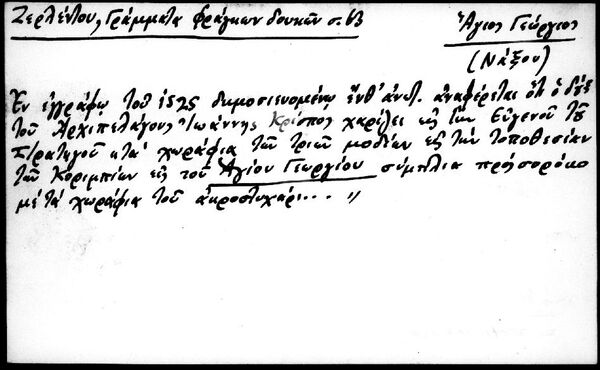 Ζερλέντου, Γράμματα Φράγκων δουκῶν σ. 63
Ἅγιος Γεώργιος
(Νάξου)
Ἐν ἐγγράφῳ τοῦ 1525 δημοσιευομένῳ ἔνθ' ἀνωτ. ἀναφέρεται ὅτι ὁ δούξ
τοῦ Ἀρχιπελάγους Ἰωάννης Κρίσπος χαρίζει εἰς τὸν Εὐγενοῦ τοῦ
Στρατηγοῦ "τὰ χωράφια τῶν τριῶν μοδίων εἰς τὴν τοποθεσίαν
τῶν Κοριμπίων εἰς τοῦ Ἁγίου Γεωργίου σύμπλια πρόσοροκο
μὲ τὰ χωράφια τοῦ ἀκροστυχάρι... "